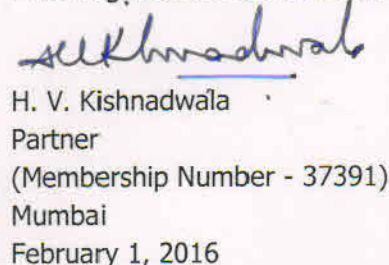 H. V. Kishnadwala
Partner
(Membership Number - 37391)
Mumbai
February 1, 2016